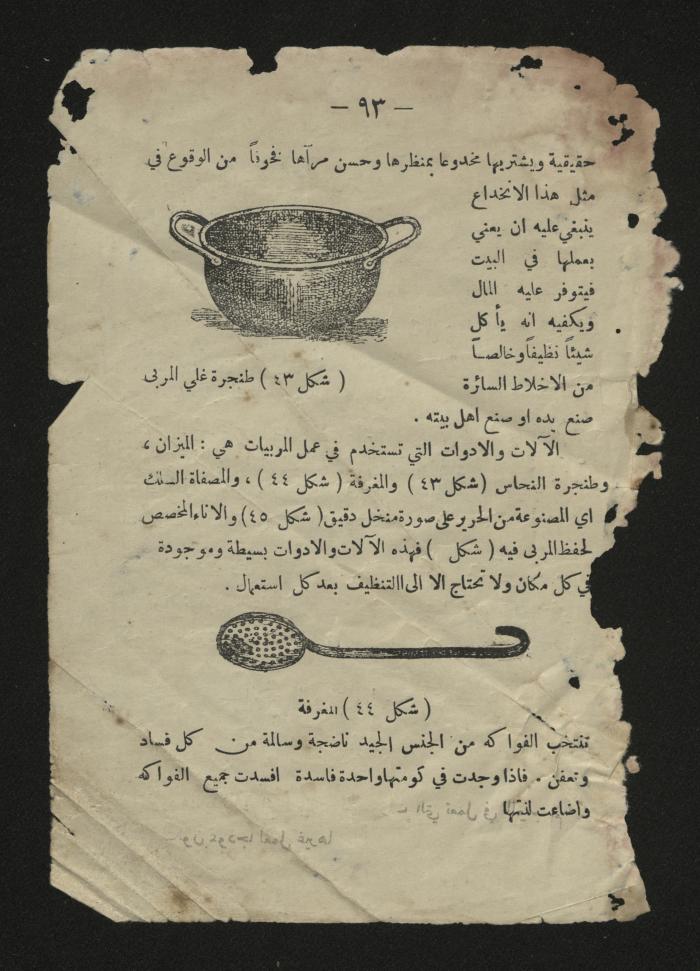 — ٩٣ —
حقيقية ويشتريها مخدوعا بمنظرها وحسن مرآها فخوفاً من الوقوع في
مثل هذا الانخداع
ينبغي عليه ان يعني
بعملها في البيت
فيتوفر عليه المال
ويكفيه انه يأكل
شيئاً نظيفاً وخالصاً
من الاخلاط السائرة
( شكل ٤٣ ) طنجرة غلي المربى
صنع يده او صنع اهل بيته .
الآلات والادوات التي تستخدم في عمل المربيات هي : الميزان ،
وطنجرة النحاس ( شكل ٤٣ ) والمغرفة ( شكل ٤٤ ) ، والمصفاة السلك
اي المصنوعة من الحرير على صورة منخل دقيق ( شكل ٤٥ ) والاناء المخصص
لحفظ المربى فيه ( شكل ) فهذه الآلات والادوات بسيطة وموجودة
في كل مكان ولا تحتاج الا الى التنظيف بعد كل استعمال .
( شكل ٤٤ ) المغرفة
تنتخب الفواكه من الجنس الجيد ناضجة وسالمة من كل فساد
وتعفن . فاذا وجدت في كومتها واحدة فاسدة افسدت جميع الفواكه
واضاعت لذتها